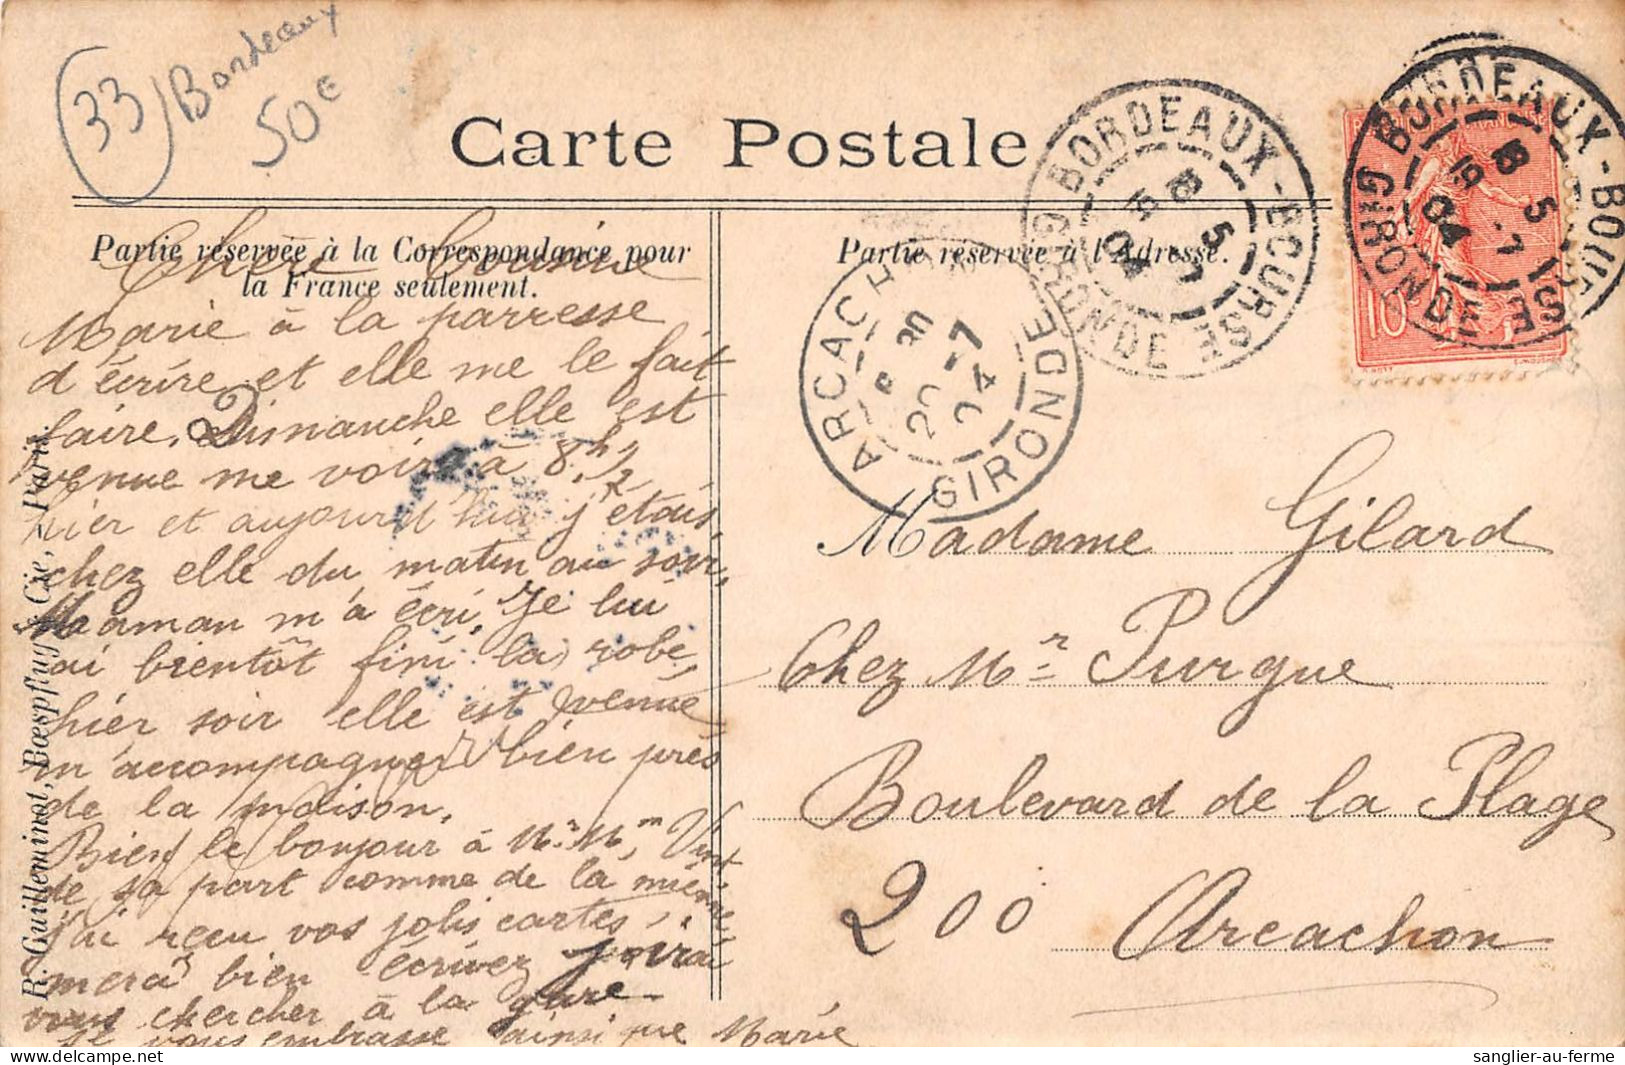 33 Bordeaux
50€
Carte Postale
Partie réservée à la Correspondance pour
la France seulement.
Partie réservée à l'Adresse.
R. Guilleminot, Bœspflug et Cie, - Paris.
BORDEAUX-BOURSE
GIRONDE
18 5
19 -7
04
BORDEAUX-BOURSE
GIRONDE
18 5
7
04
ARCACHON
GIRONDE
20 -7
04
10
Chère Cousine
Marie à la parresse
d'écrire et elle me le fait
faire. Dimanche elle est
venue me voir à 8.h 1/2
hier et aujourd'hui j'étais
chez elle du matin au soir.
Maman m'a écri, Je lui
ai bientôt fini la robe,
hier soir elle est venue
m'accompagner bien près
de la maison.
Bien le bonjour à Mr. Mm
de sa part comme de la mienne,
j'ai reçu vos jolis cartes,
merci bien écrivez j'irai
vous chercher à la gare-
Je vous embrasse ainsi que Marie
Madame Gilard
Chez Mr Purgue
Boulevard de la Plage
200 Arcachon
sanglier-au-ferme
delcampe.net